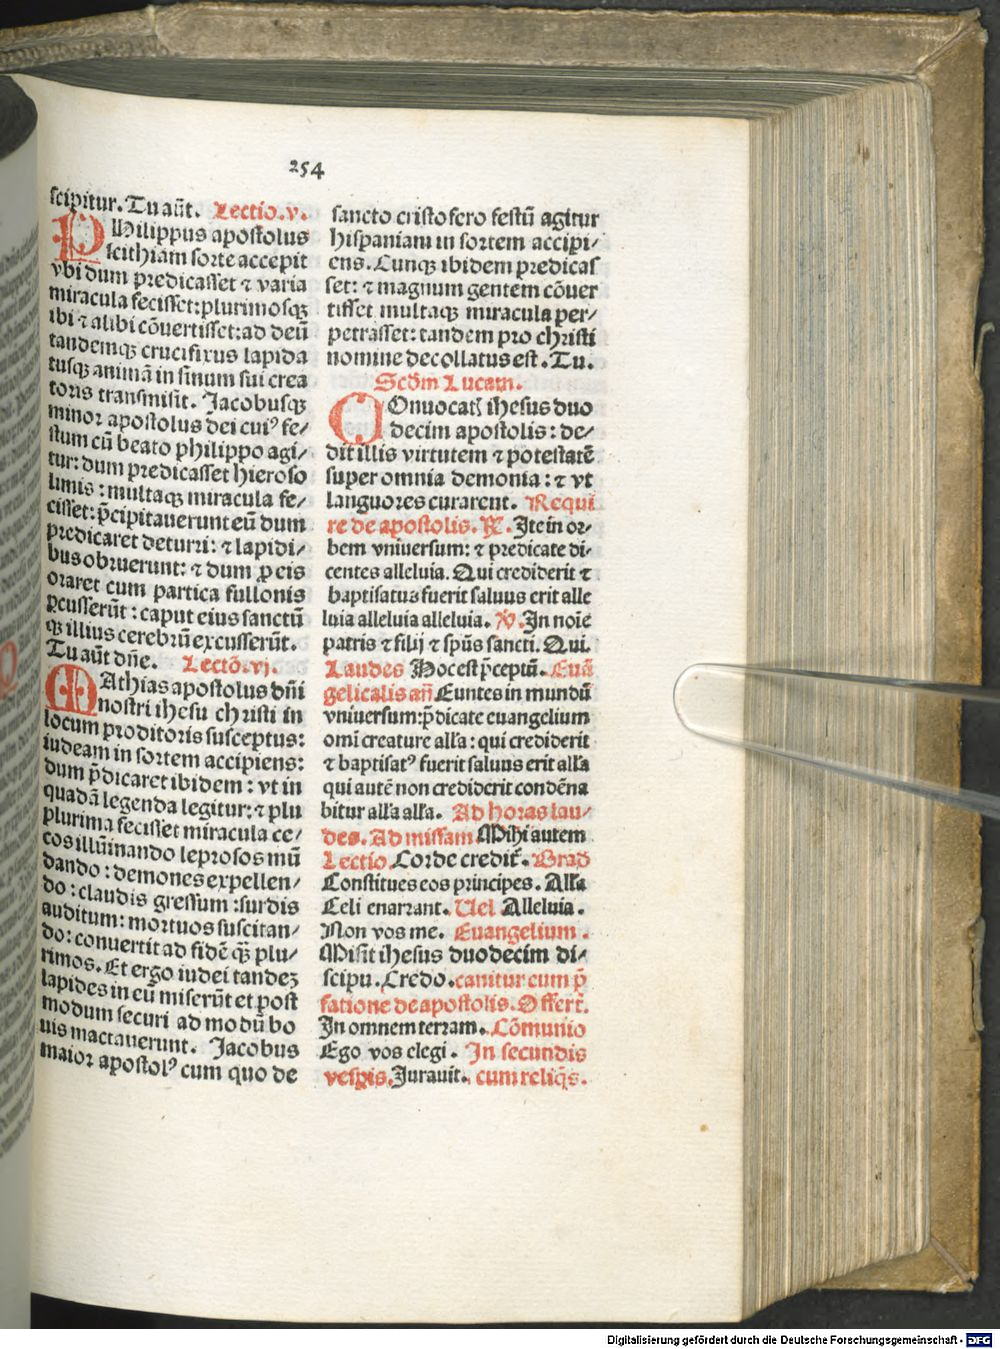 254
scipitur. Tu aūt. Lectio.v.
PHilippus apostolus
scithiam sorte accepit
vbi dum predicasset ⁊ varia
miracula fecisset:plurimosqꝫ
ibi ⁊ alibi cōuertisset:ad deū
tandemqꝫ crucifixus lapida
tusqꝫ animā in sinum sui crea
toris transmisit. Jacobusqꝫ
minor apostolus dei cuiꝰ fe⸗
stum cū beato philippo agi⸗
tur: dum predicasset hieroso
limis : multaqꝫ miracula fe⸗
cisset: p̄cipitauerunt eū dum
predicaret de turri: ⁊ lapidi⸗
bus obruerunt: ⁊ dum ꝓ eis
oraret cum partica fullonis
ꝑcusserūt : caput eius sanctū
qꝫ illius cerebrū excusserūt.
Tu aūt dn̄e. Lectō.vj.
MAthias apostolus dn̄i
nostri ihesu christi in
locum proditoris susceptus:
iudeam in sortem accipiens:
dum p̄dicaret ibidem : vt in
quadā legenda legitur: ⁊ plu
plurima fecisset miracula ce⸗
cos illūinando leprosos mū
dando : demones expellen⸗
do : claudis gressum :surdis
auditum: mortuos suscitan⸗
do: conuertit ad fidē qꝫ̄ plu⸗
rimos. Et ergo iudei tandeꝫ
lapides in eū miserūt et post
modum securi ad modū bo
uis mactauerunt. Jacobus
maior apostolꝰ cum quo de
sancto cristofero festū agitur
hispaniam in sortem accipi⸗
ens. Cunqꝫ ibidem predicas
set: ⁊ magnum gentem cōuer
tisset multaqꝫ miracula per⸗
petrasset: tandem pro christi
nomine decollatus est. Tu.
Scd̄m Lucam.
COnuocatꝭ ihesus duo
decim apostolis : de⸗
dit illis virtutem ⁊ potestatē
super omnia demonia: ⁊ vt
languores curarent. Requi
re de apostolis. ℟. Jte in or⸗
bem vniuersum: ⁊ predicate di⸗
centes alleluia. Qui crediderit ⁊
baptisatus fuerit saluus erit alle
luia alleluia alleluia. ℣. In noīe
patris ⁊ filij ⁊ spūs sancti. Qui.
Laudes Hoc est p̄ceptū. Euā
gelicalis an̄ Euntes in mundū
vniuersum:p̄dicate euangelium
omī creature all'a : qui crediderit
⁊ baptisatꝰ fuerit saluus erit all'a
qui autē non crediderit condēna
bitur all'a all'a. Ad horas lau⸗
des. Ad missam Mihi autem
Lectio Corde credit̄. Grad
Constitues eos principes. All'a
Celi enarrant. Uel Alleluia.
Non vos me. Euangelium.
Misit ihesus duodecim di⸗
scipu. Credo. canitur cum p̄
fatione de apostolis. Offert̄.
In omnem terram. Cōmunio
Ego vos elegi. In secundis
vesꝑis. Jurauit. cum reliq̄s.
Digitalisierung gefördert durch die Deutsche Forschungsgemeinschaft - DFG